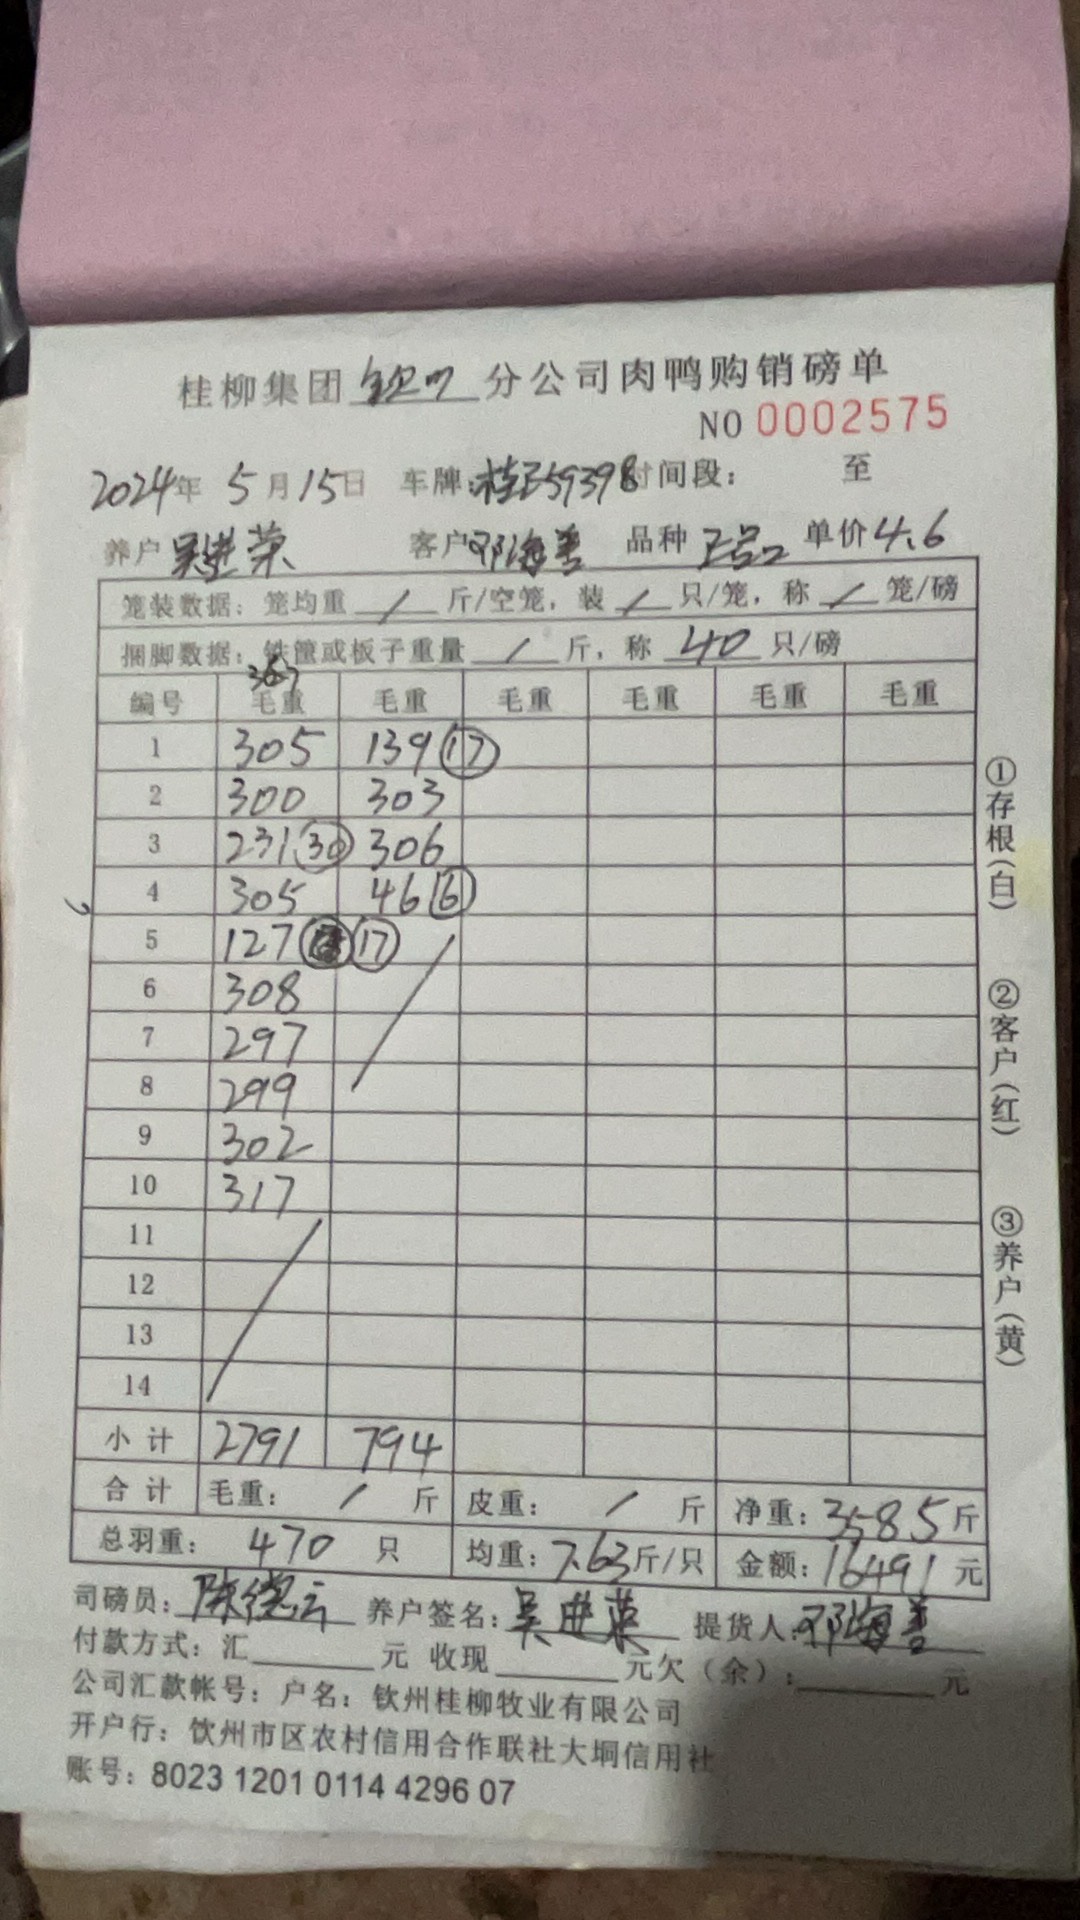 桂柳集团 钦州 分公司肉鸭购销磅单
NO 0002575
2024年 5月15日 车牌:桂E59398 时间段: 至
养户 吴进荣 客户 邓海善 品种 2号 单价 4.6
笼装数据: 笼均重 / 斤/空笼, 装 / 只/笼, 称 / 笼/磅
捆脚数据: 铁筐或板子重量 / 斤, 称 40 只/磅
编号 毛重 毛重 毛重 毛重 毛重 毛重
1 305 139 ⑰
2 300 303
3 231 ㉚ 306
4 305 46 ⑥
5 127 ⑰
6 308
7 297
8 299
9 302
10 317
11
12
13
14
小计 2791 794
合计 毛重: / 斤 皮重: / 斤 净重: 3585 斤
总羽重: 470 只 均重: 7.63斤/只 金额: 16491 元
司磅员: 陈德云 养户签名: 吴进荣 提货人: 邓海善
付款方式: 汇 元 收现 元欠(余): 元
公司汇款帐号: 户名: 钦州桂柳牧业有限公司
开户行: 钦州市区农村信用合作联社大垌信用社
账号: 8023 1201 0114 4296 07
①存根(白)
②客户(红)
③养户(黄)